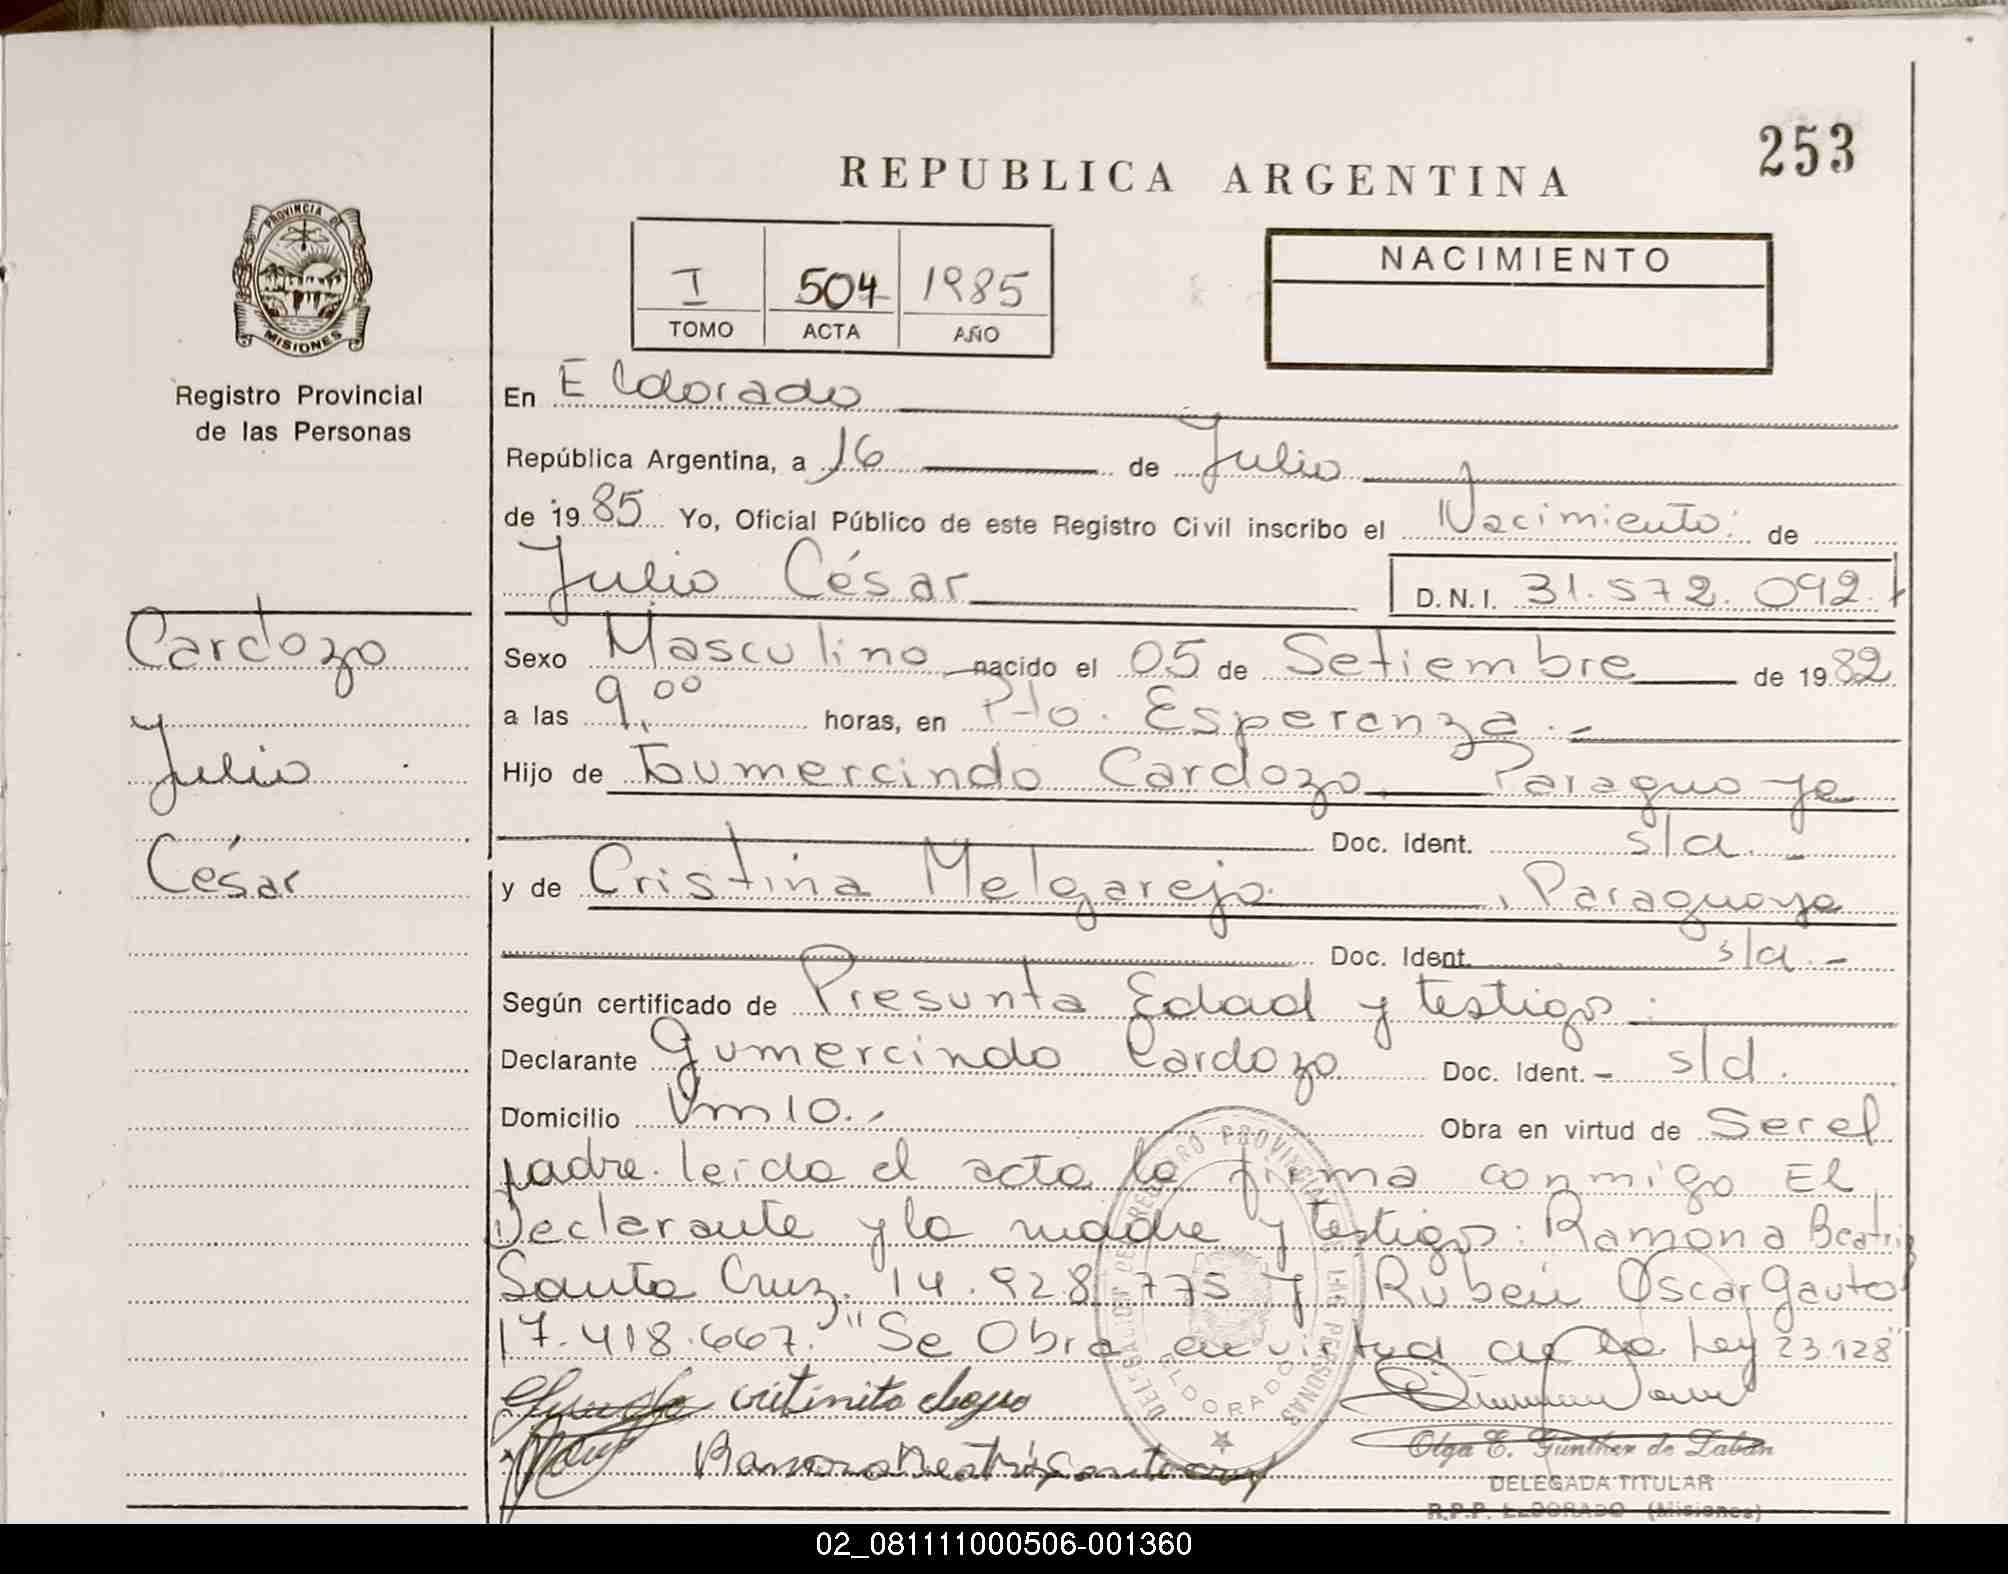 253
REPUBLICA ARGENTINA
PROVINCIA DE
MISIONES
Registro Provincial
de las Personas
I 504 1985
TOMO ACTA AÑO
NACIMIENTO
En Eldorado
República Argentina, a 16 de Julio
de 1985 Yo, Oficial Público de este Registro Civil inscribo el Nacimiento: de
Julio César D.N.I. 31.572.092.
Cardozo
y
Julio
César
Sexo Masculino nacido el 05 de Setiembre de 1982
a las 9,00 horas, en Pto. Esperanza.-
Hijo de Gumercindo Cardozo, Paraguaya
Doc. Ident. s/d.-
y de Cristina Melgarejo, Paraguaya
Doc. Ident. s/d.-
Según certificado de Presunta Edad y testigos:
Declarante Gumercindo Cardozo Doc. Ident.- s/d.
Domicilio Km 10.- Obra en virtud de Ser el
padre. leida el acta la firma conmigo El
Declarante y la madre y testigos: Ramona Beatriz
Santa Cruz. 14.928.775 y Rubén Oscar Gauto
17.418.667. "Se Obra en virtud de la Ley 23.128"
Ramona Beatris Santa cruz
DELEGACION DE REGISTRO PROVINCIAL DE LAS PERSONAS
ELDORADO
Olga E. Günther de Laban
DELEGADA TITULAR
R.P.P. ELDORADO (Misiones)
02_081111000506-001360